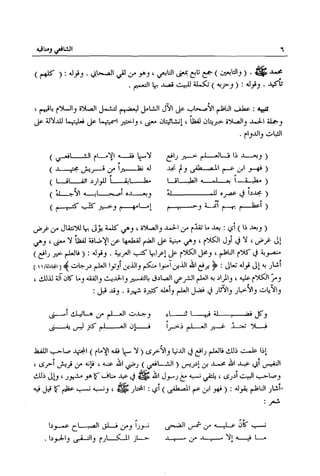 ٦ الشافعي ومناقبه
محمد ﷺ . ( والتابعين ) جمع تابع بمعنى التابعي ، وهو من لقي الصحابي . وقوله : ( كلهم )
تأكيد . وقوله : ( وحزبه ) تكملة للبيت قصد بها التعميم .
تنبيه : عطف الناظم الأصحاب على الآل الشامل لبعضهم لتشمل الصلاة والسلام باقيهم ،
وجملة الحمد والصلاة خبريتان لفظاً ، إنشائيتان معنى ، واختير اسميتهما على فعليتهما للدلالة على
الثبات والدوام .
( وبعــد ذا فـالعــلم خــير رافع لاسيما فقــه الإمــام الشــافعــي )
( فهــو ابن عــم المصطفى ولم نجد له نظــيــراً من قــريـش مجتهــد )
( مطبــقــاً بعلمــه الطبــاقــا مطــابــقــاً للوارد اتفــاقــا )
( مجدداً في عصره للملــــة وبعــده أصحــابــه الأجلــة )
( أعظم بهم أئمة وحسبهم إمامهم وخير كتب كتبهم )
( وبعد ذا ) أي : بعد ما تقدم من الحمد والصلاة ، وهي كلمة يؤتى بها للانتقال من غرض
إلى غرض ، لا في أول الكلام ، وهي مبنية على الضم لقطعها عن الإضافة لفظاً لا معنى ، وهي
منصوبة في كلام الناظم ، ومحل الكلام على إعرابها كتب العربية . وقوله : ( فالعلم خير رافع )
أشار به إلى قوله تعالى : ﴿ يرفع الله الذين آمنوا منكم والذين أوتوا العلم درجات ﴾ [ المجادلة/١١ ]
ومرّ الكلام عليه ، والمراد به العلم الشرعي الصادق بالتفسير والحديث والفقه وما كان آلة لذلك ،
والآيات والأخبار والآثار في فضل العلم وأهله كثيرة شهيرة . وقد قيل :
وكل فضــيــلة فيهــا سنــاء وجدت العــلم من هـاتيــك أسنـى
فــلا تعتــدّ غــير العــلم ذخــراً فــإن العــلم كنز ليس يفــنى
إذا علمت ذلك فالعلم رافع في الدنيا والأخرى ( لا سيما فقه الإمام ) المجتهد صاحب اللفظ
النفيس أبي عبد الله محمد بن إدريس ( الشافعي ) رضي الله عنه ، فإنه من قريش أحرى ،
وصاحب البيت أدرى ، يلتقي نسبه مع رسول الله ﷺ في عبد مناف كما هو مشهور ، وإلى ذلك
أشار الناظم بقوله : ( فهو ابن عم المصطفى ) أي : المختار ﷺ ، ونسبه نسب عظيم كما قيل فيه
شعر :
نسب كأن عليــه من شمس الضحى نــوراً ومن فلــق الصبــاح عمــودا
ما فيــه إلا سيــد من سيــد حــاز المكــارم والتــقى والجــودا .